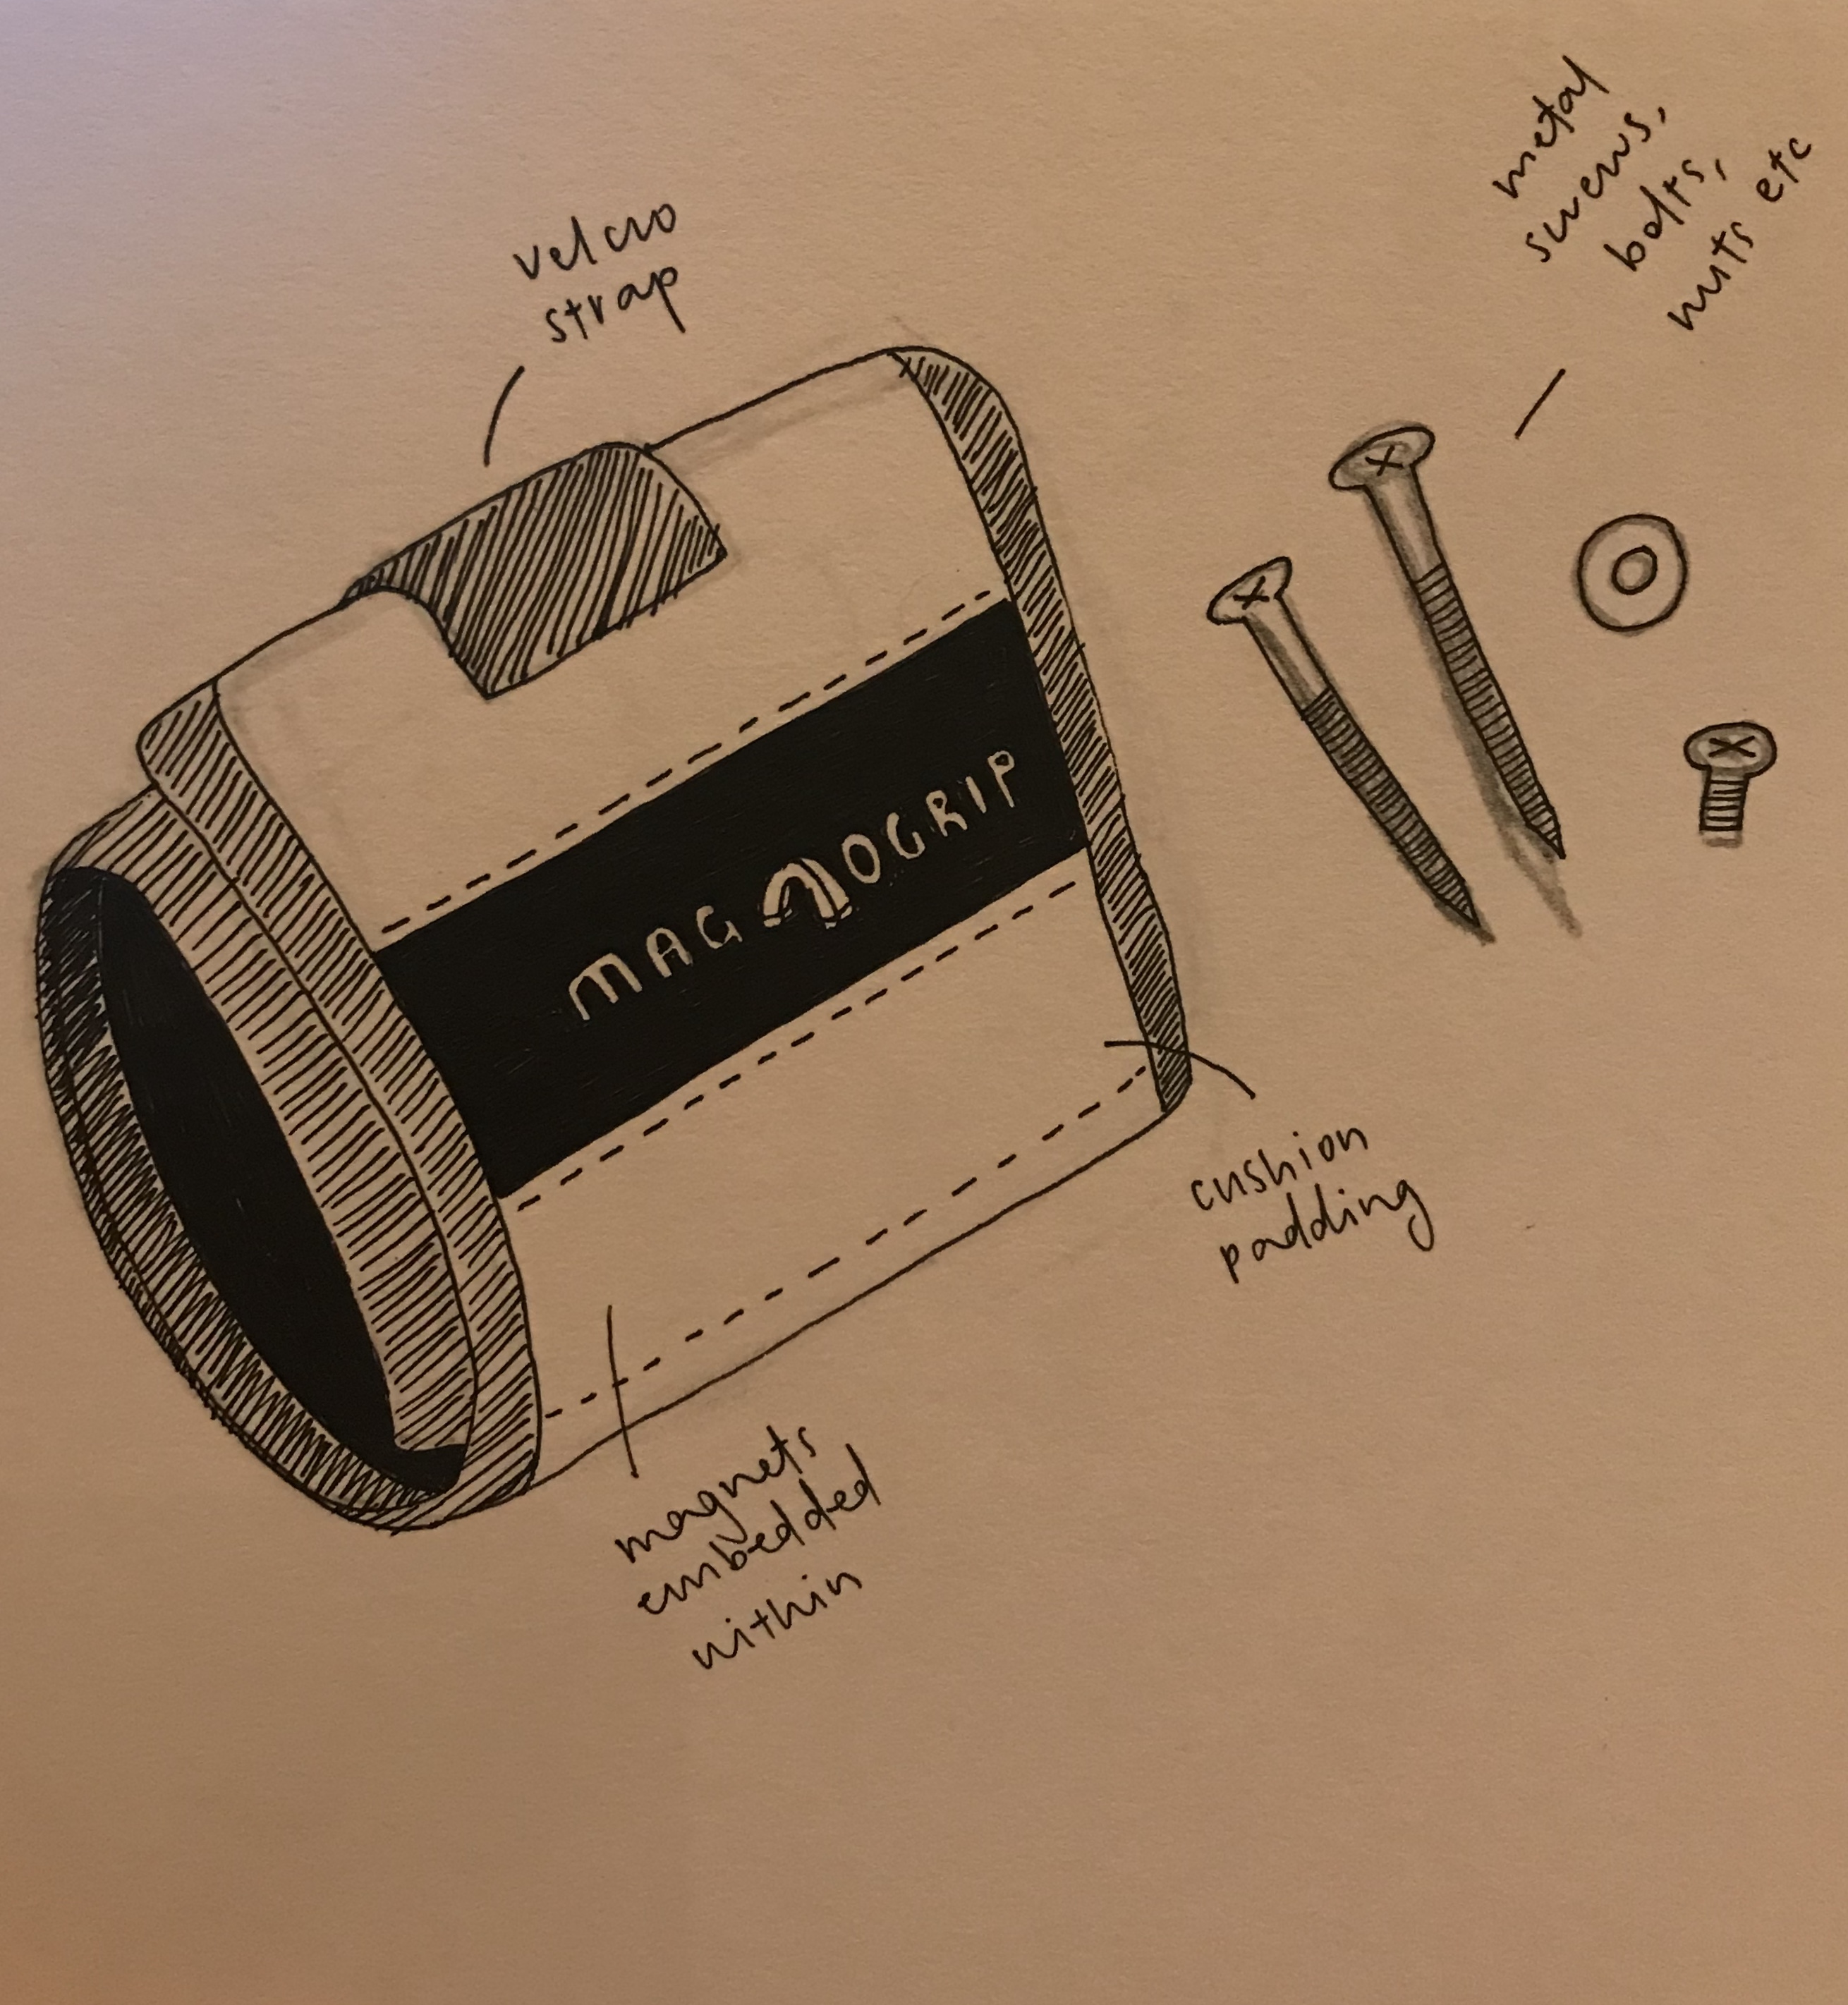 velcro
strap
metal
screws,
bolts,
nuts etc
MAGNOGRIP
cushion
padding
magnets
embedded
within